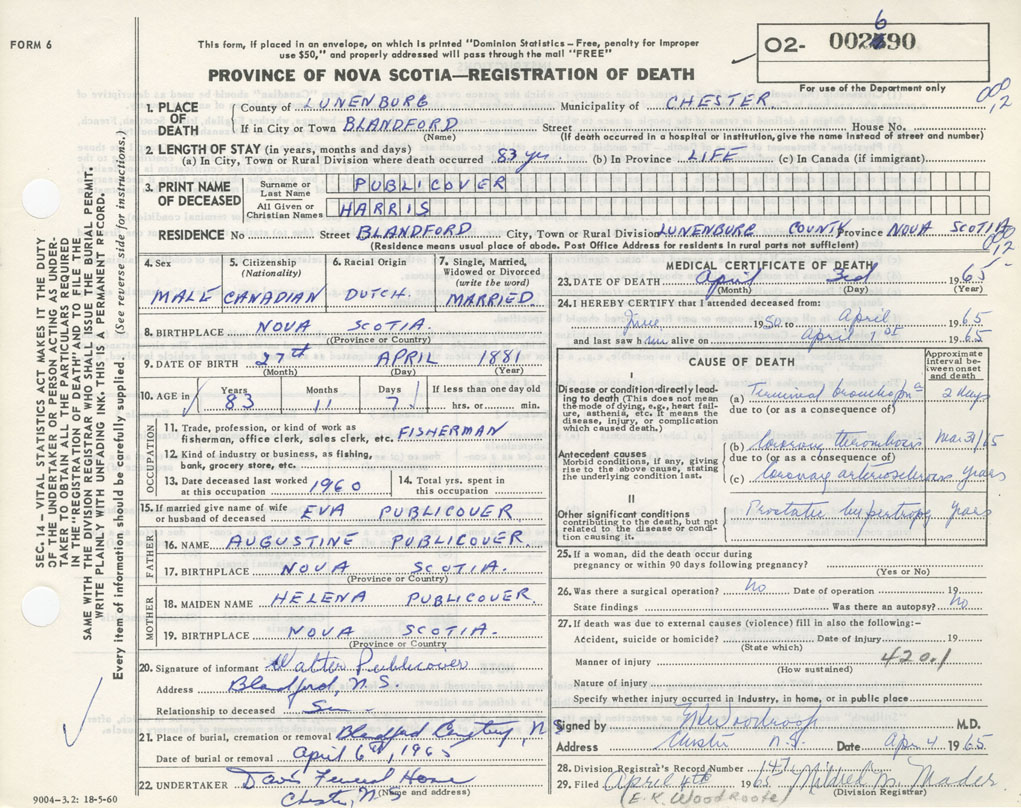 FORM 6
This form, if placed in an envelope, on which is printed "Dominion Statistics – Free, penalty for improper
use $50," and properly addressed will pass through the mail "FREE"
PROVINCE OF NOVA SCOTIA—REGISTRATION OF DEATH
02- 002690
For use of the Department only
1. PLACE OF DEATH { County of LUNENBURG Municipality of CHESTER
If in City or Town BLANDFORD Street House No.
(Name) (If death occurred in a hospital or institution, give the name instead of street and number)
2. LENGTH OF STAY (in years, months and days)
(a) In City, Town or Rural Division where death occurred 83 yrs. (b) In Province LIFE (c) In Canada (if immigrant)
3. PRINT NAME OF DECEASED Surname or Last Name PUBLICOVER
All Given or Christian Names HARRIS
RESIDENCE No Street BLANDFORD City, Town or Rural Division LUNENBURG COUNTY Province NOVA SCOTIA
(Residence means usual place of abode. Post Office Address for residents in rural parts not sufficient)
4. Sex MALE
5. Citizenship (Nationality) CANADIAN
6. Racial Origin DUTCH
7. Single, Married, Widowed or Divorced (write the word) MARRIED
8. BIRTHPLACE NOVA SCOTIA.
(Province or Country)
9. DATE OF BIRTH 27th APRIL 1881
(Month) (Day) (Year)
10. AGE in Years 83 Months 11 Days 7 If less than one day old
hrs. or min.
OCCUPATION
11. Trade, profession, or kind of work as
fisherman, office clerk, sales clerk, etc. FISHERMAN
12. Kind of industry or business, as fishing,
bank, grocery store, etc.
13. Date deceased last worked at this occupation 1960
14. Total yrs. spent in this occupation
15. If married give name of wife
or husband of deceased EVA PUBLICOVER
FATHER
16. NAME AUGUSTINE PUBLICOVER
17. BIRTHPLACE NOVA SCOTIA.
(Province or Country)
MOTHER
18. MAIDEN NAME HELENA PUBLICOVER
19. BIRTHPLACE NOVA SCOTIA.
(Province or Country)
20. Signature of informant Walter Publicover
Address Blandford, N.S.
Relationship to deceased Son
21. Place of burial, cremation or removal Blandford Cemetery, N S
Date of burial or removal April 6th, 1965
22. UNDERTAKER Davis Funeral Home
(Name and address)
Chester, N.S
9004–3.2: 18-5-60
MEDICAL CERTIFICATE OF DEATH
23. DATE OF DEATH April 3rd 1965
(Month) (Day) (Year)
24. I HEREBY CERTIFY that I attended deceased from:
June 1950 to April 1965
and last saw him alive on April 1st 1965
CAUSE OF DEATH
Approximate interval between onset and death
I
Disease or condition directly leading to death (This does not mean the mode of dying, e.g., heart failure, asthenia, etc. It means the disease, injury, or complication which caused death.)
(a) Terminal bronchopn 2 days
due to (or as a consequence of)
Antecedent causes
Morbid conditions, if any, giving rise to the above cause, stating the underlying condition last.
(b) Coronary thrombosis Mar 31/65
due to (or as a consequence of)
(c) Coronary arteriosclerosis years
II
Other significant conditions
contributing to the death, but not related to the disease or condition causing it.
Prostatic hypertropy years
25. If a woman, did the death occur during
pregnancy or within 90 days following pregnancy?
(Yes or No)
26. Was there a surgical operation? No Date of operation 19
State findings Was there an autopsy? No
27. If death was due to external causes (violence) fill in also the following:–
Accident, suicide or homicide? Date of injury 19
(State which)
Manner of injury 420.1
(How sustained)
Nature of injury
Specify whether injury occurred in industry, in home, or in public place
Signed by M.D.
Address Chester N.S. Date Apr 4 1965
28. Division Registrar's Record Number 147
29. Filed April 4th 1965 Mildred M. Mader
(Division Registrar)
(E.K. Woodroofe)
SEC. 14 – VITAL STATISTICS ACT MAKES IT THE DUTY
OF THE UNDERTAKER OR PERSON ACTING AS UNDER-
TAKER TO OBTAIN ALL THE PARTICULARS REQUIRED
IN THE "REGISTRATION OF DEATH" AND TO FILE THE
SAME WITH THE DIVISION REGISTRAR WHO SHALL ISSUE THE BURIAL PERMIT.
WRITE PLAINLY WITH UNFADING INK. THIS IS A PERMANENT RECORD.
Every item of information should be carefully supplied. (See reverse side for instructions.)